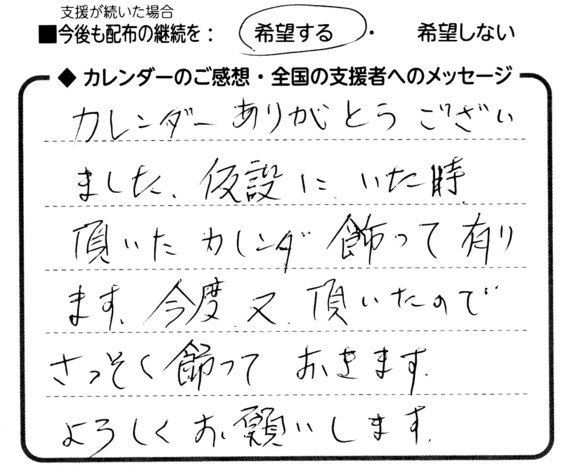 支援が続いた場合
■今後も配布の継続を： 希望する ・ 希望しない
◆ カレンダーのご感想・全国の支援者へのメッセージ
カレンダー ありがとう ござい
ました、仮設に いた時、
頂いた カレンダ 飾って 有り
ます、今度、又、頂いたので
さっそく 飾って おきます、
よろしく お願いします、